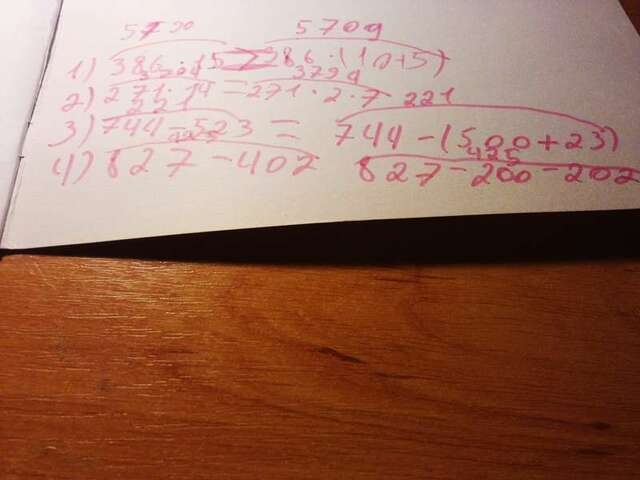 5790 5709
1) 386 · 15 > 286 · (10+5)
3794 3794
2) 271 · 14 = 271 · 2 · 7
221 221
3) 744 - 523 = 744 - (500 + 23)
425 425
4) 827 - 402 827 - 200 - 202